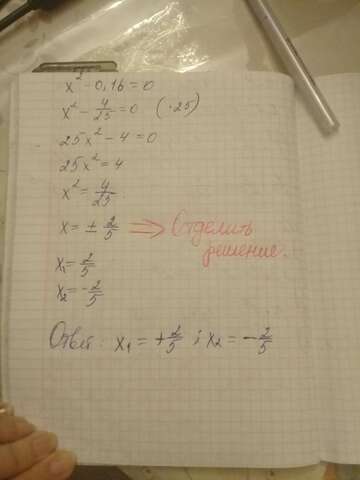 x² - 0,16 = 0
x² - 4/25 = 0 (·25)
25x² - 4 = 0
25x² = 4
x² = 4/25.
x = ± 2/5 ⇒ Отделить
решение.
x₁ = 2/5
x₂ = -2/5
Ответ: x₁ = +2/5 ; x₂ = -2/5